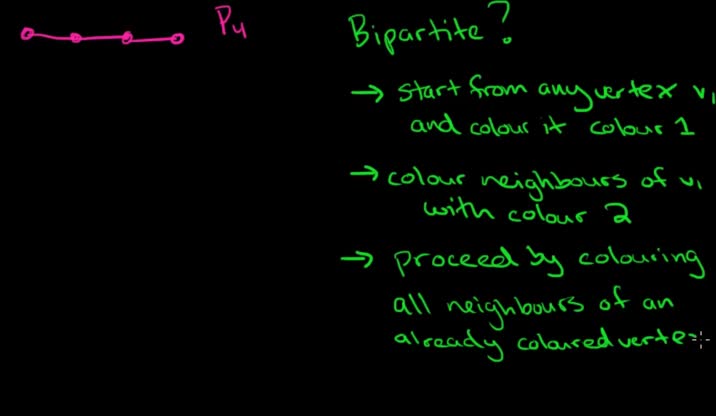 P4
Bipartite?
→ start from any vertex v1
and colour it colour 1
→ colour neighbours of v1
with colour 2
→ proceed by colouring
all neighbours of an
already coloured verte